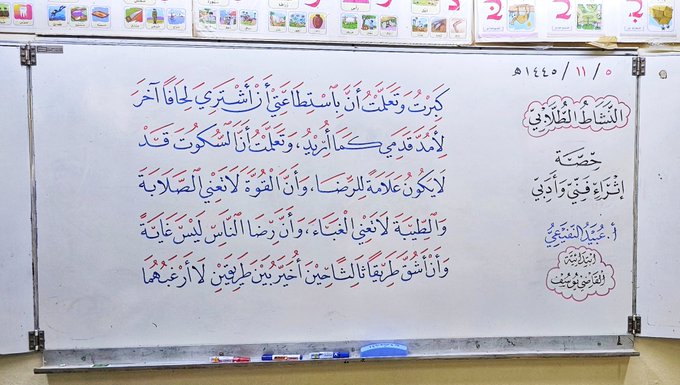 ٥ / ١١ / ١٤٤٥هـ
النَّشَاطُ الطُّلَّابِيّ
حِصَّة
إِثْرَاءٍ فَنِّيّ وَأَدَبِيّ
أ. عُبَيْدُ النُّفَيْعِيُّ
ابْتِدَائِيَّة
القَاضِي يُوسُف
كَبِرْتُ وَتَعَلَّمْتُ أَنَّ بِاسْتِطَاعَتِي أَنْ أَشْتَرِيَ لِحَافًا آخَرَ
لِأَمُدَّ قَدَمِي كَمَا أُرِيدُ، وَتَعَلَّمْتُ أَنَّ السُّكُوتَ قَدْ
لَا يَكُونُ عَلَامَةً لِلرِّضَا، وَأَنَّ القُوَّةَ لَا تَعْنِي الصَّلَابَةَ
وَالطِّيبَةَ لَا تَعْنِي الغَبَاءَ، وَأَنَّ رِضَا النَّاسِ لَيْسَ غَايَةً
وَأَنْ أَشُقَّ طَرِيقًا ثَالِثًا حِينَ أُخَيَّرُ بَيْنَ طَرِيقَيْنِ لَا أَرْغَبُهُمَا